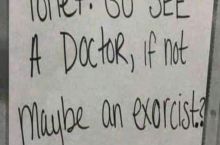 GO SEE
A DOCTOR, if not
Maybe an exorcist?